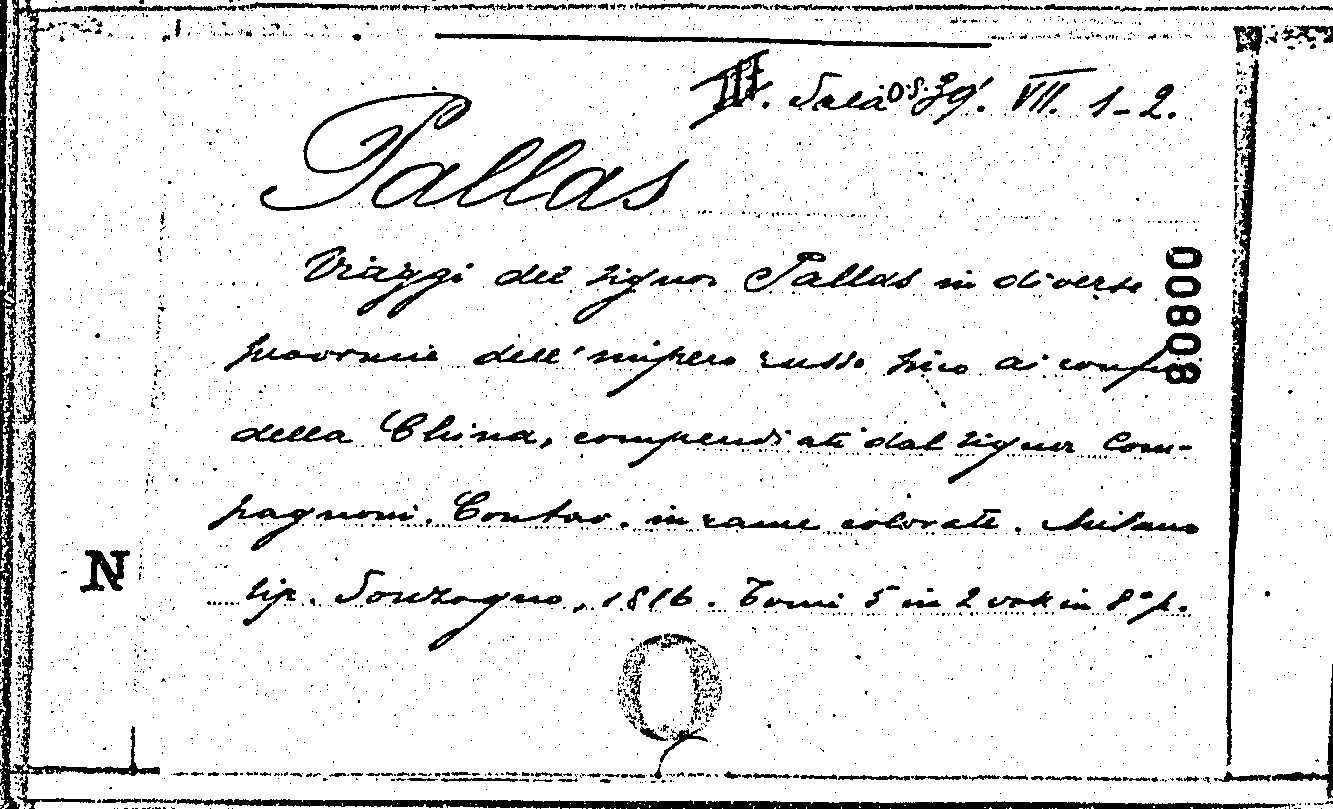 III. Sala O.S. 39. VII. 1-2.
Pallas
Viaggi del signor Pallas in diverse
provincie dell'impero russo fino ai confini
della China, compendiati dal signor Com-
pagnoni. Con tav. in rame colorate. Milano
tip. Sonzogno, 1816. Tomi 5 in 2 vol. in 8° p.
00808
N